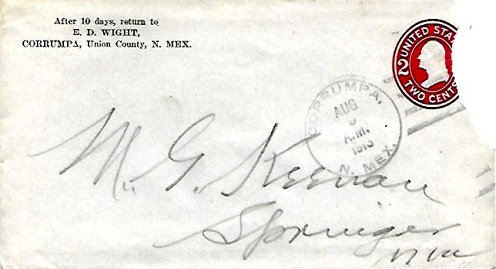 After 10 days, return to
E. D. WIGHT,
CORRUMPA, Union County, N. MEX.
UNITED STA
2
TWO CENTS
CORRUMPA,
AUG
A.M.
1913
N. MEX.
M. G. Keenan
Springer
N M